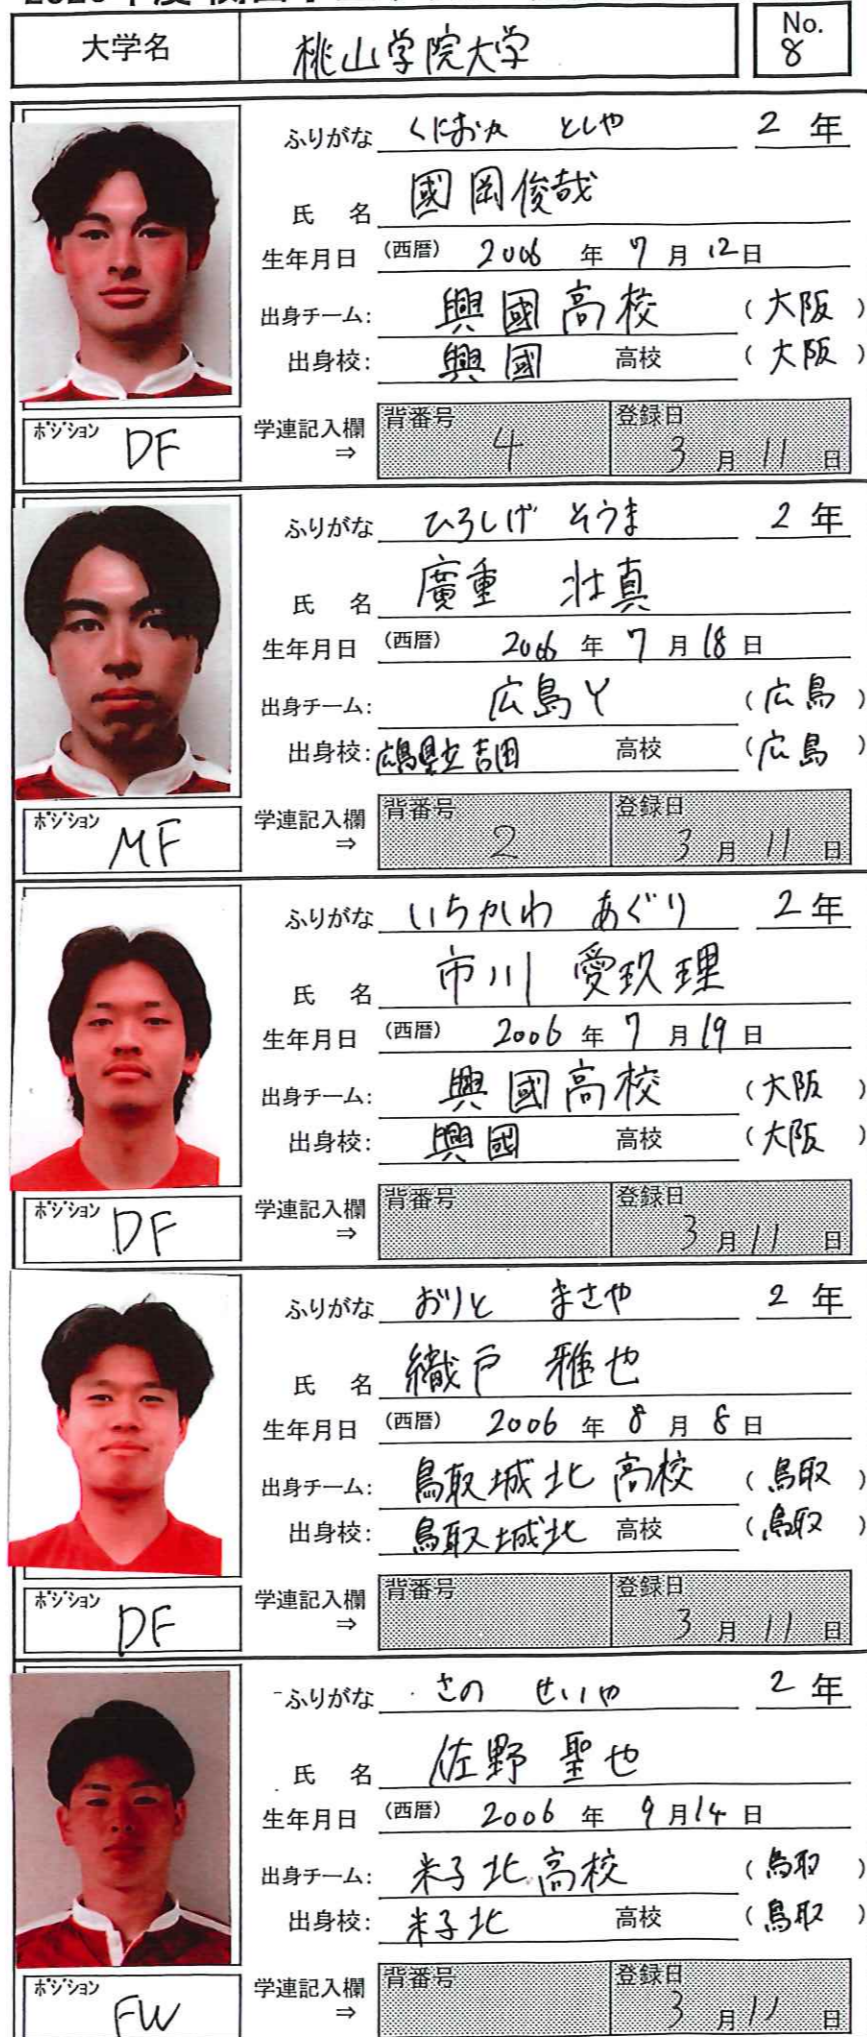 大学名 桃山学院大学 No. 8
ふりがな くにおか としや 2 年
氏 名 國岡俊哉
生年月日 (西暦) 2006 年 7 月 12 日
出身チーム: 興國高校 (大阪)
出身校: 興國 高校 (大阪)
ポジション DF 学連記入欄 ⇒ 背番号 4 登録日 3 月 11 日
ふりがな ひろしげ そうま 2 年
氏 名 廣重 壮真
生年月日 (西暦) 2006 年 7 月 18 日
出身チーム: 広島Y (広島)
出身校: 広島県立吉田 高校 (広島)
ポジション MF 学連記入欄 ⇒ 背番号 2 登録日 3 月 11 日
ふりがな いちかわ あぐり 2 年
氏 名 市川 愛玖理
生年月日 (西暦) 2006 年 7 月 19 日
出身チーム: 興國高校 (大阪)
出身校: 興國 高校 (大阪)
ポジション DF 学連記入欄 ⇒ 背番号 登録日 3 月 11 日
ふりがな おりと まさや 2 年
氏 名 織戸 雅也
生年月日 (西暦) 2006 年 8 月 8 日
出身チーム: 鳥取城北高校 (鳥取)
出身校: 鳥取城北 高校 (鳥取)
ポジション DF 学連記入欄 ⇒ 背番号 登録日 3 月 11 日
ふりがな さの せいや 2 年
氏 名 佐野 聖也
生年月日 (西暦) 2006 年 9 月 14 日
出身チーム: 米子北高校 (鳥取)
出身校: 米子北 高校 (鳥取)
ポジション FW 学連記入欄 ⇒ 背番号 登録日 3 月 11 日